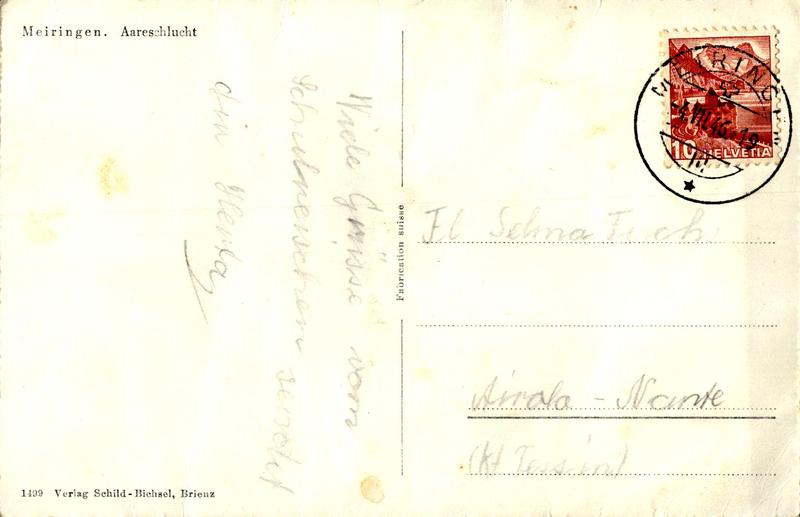 Meiringen. Aareschlucht
Viele Grüsse vom
Schulreischen sendet
dir Herta
Fabrication suisse
MEIRINGEN
10 HELVETIA
Fl Selma
Airolo - Nante
(Kt Tessin)
1499 Verlag Schild-Bichsel, Brienz